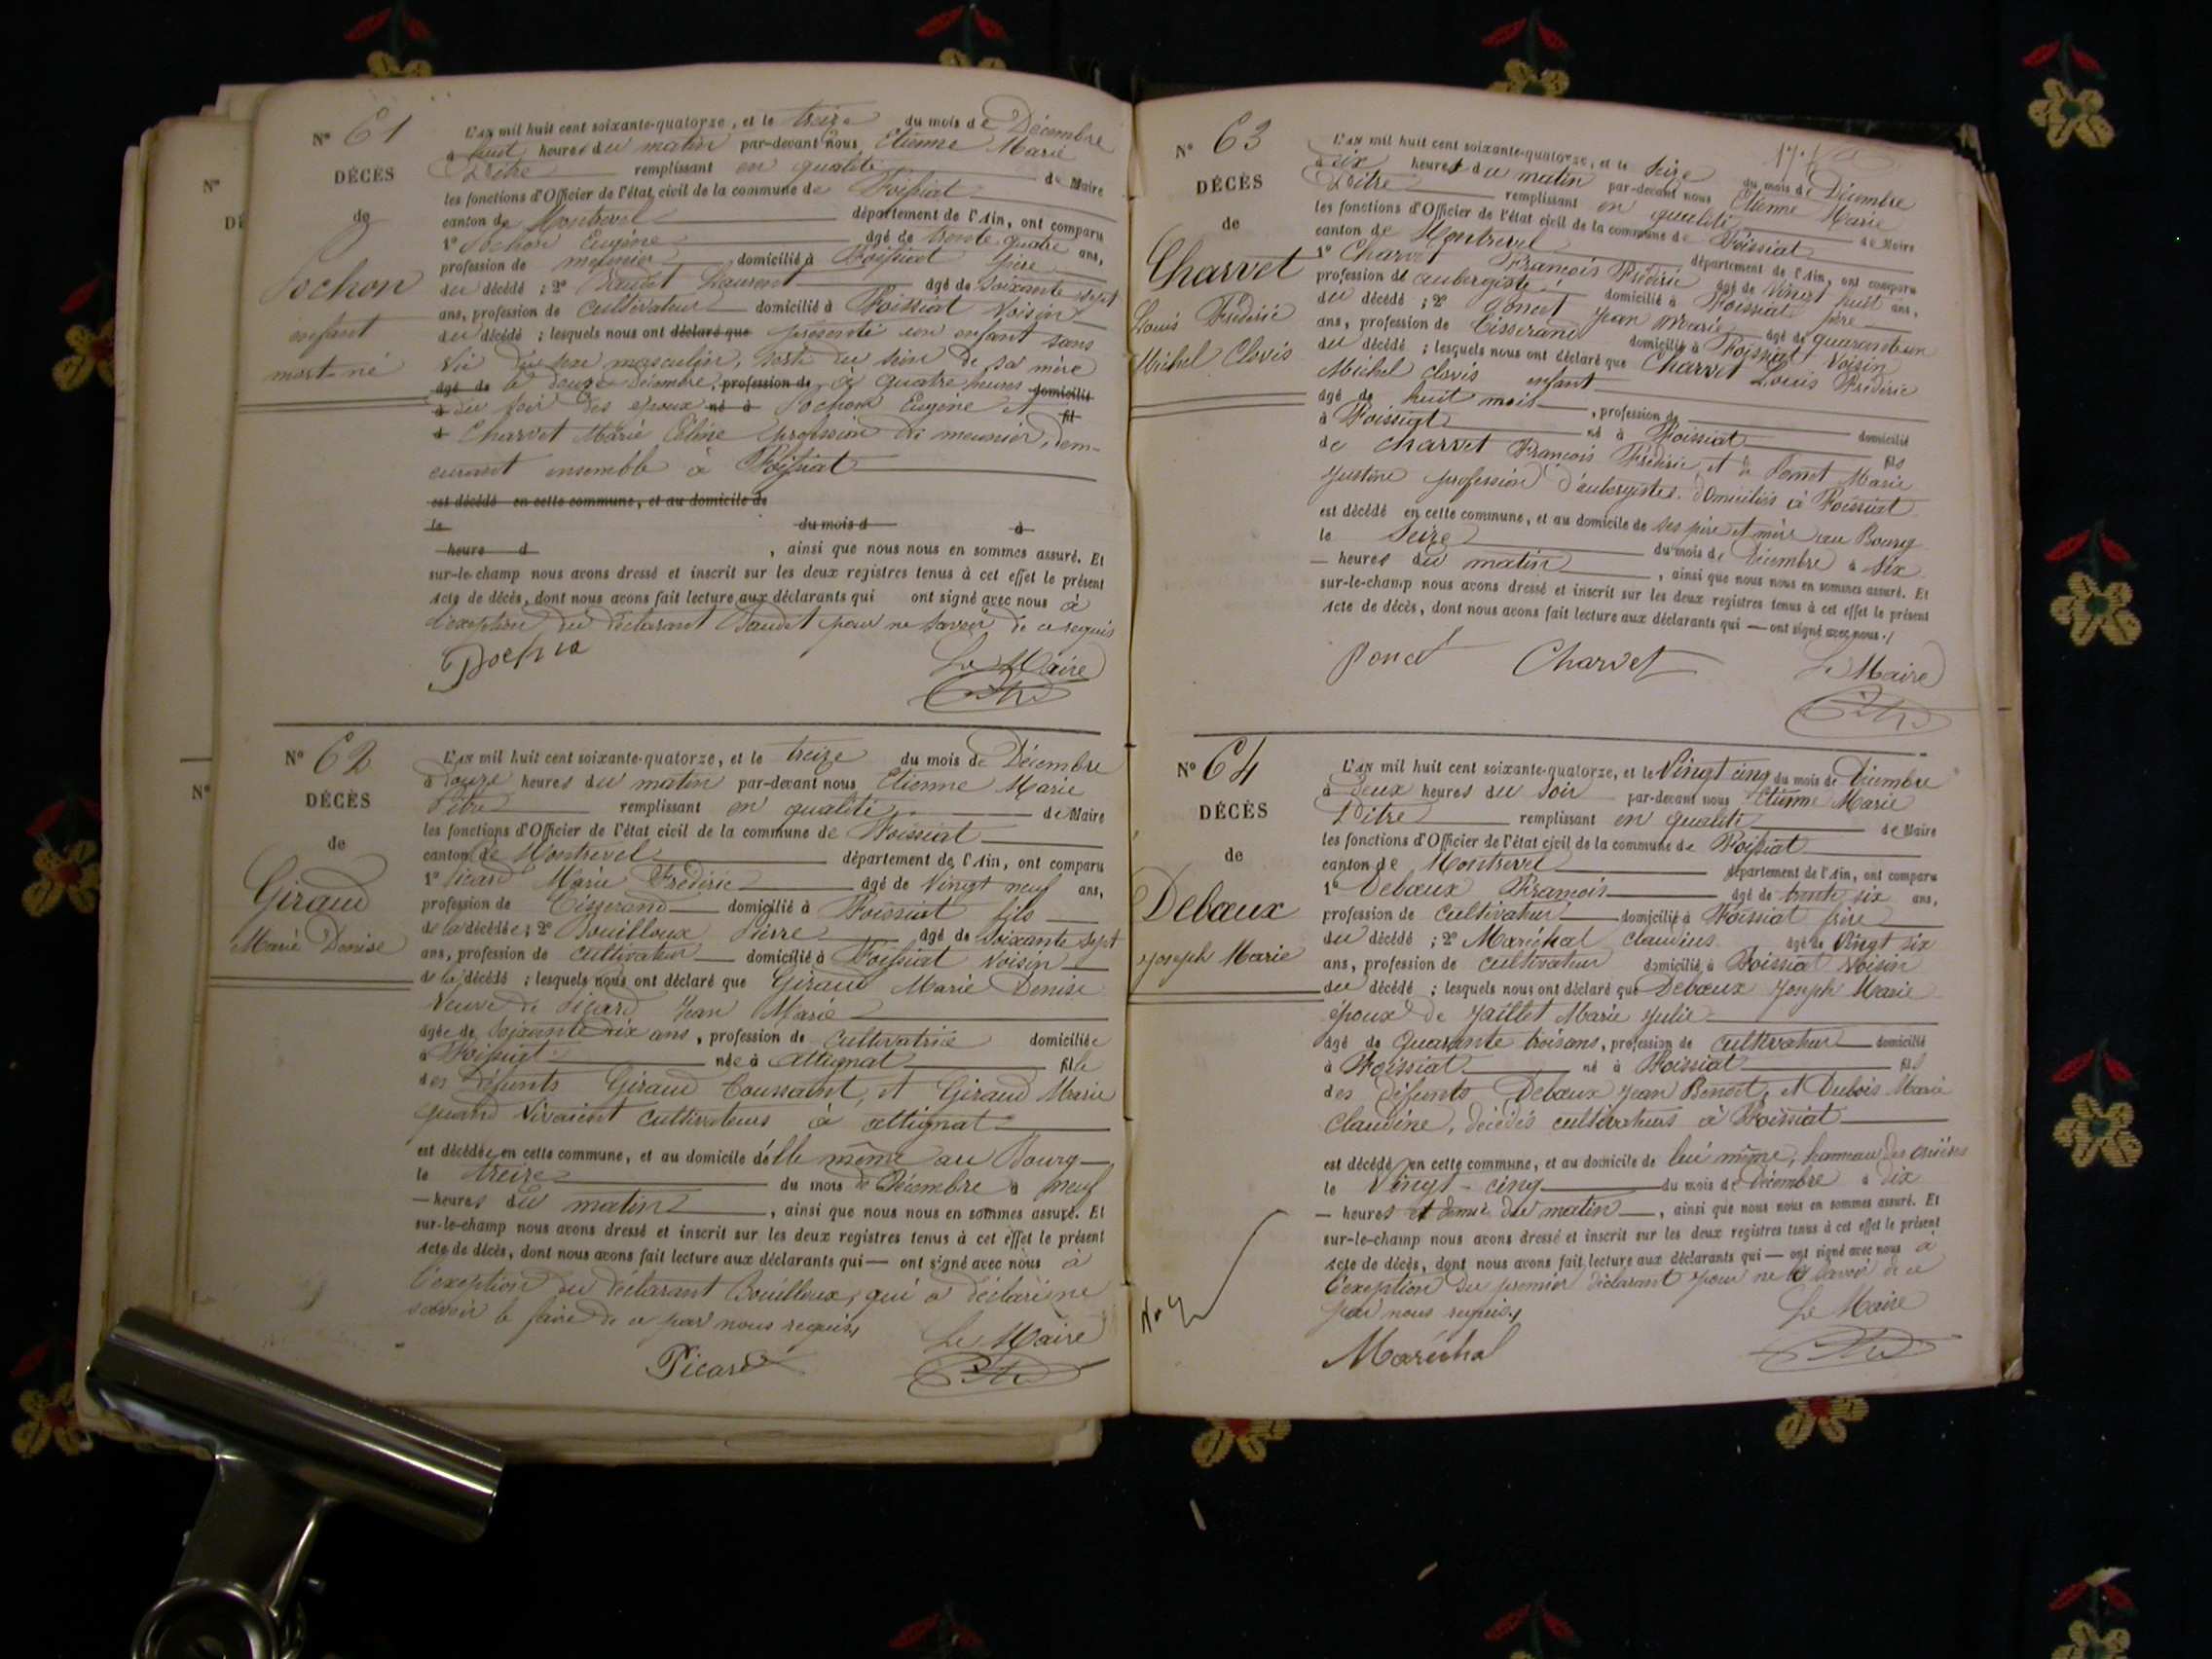 N° 61
DÉCÈS
de
Pochon
enfant
mort-né
L'AN mil huit cent soixante-quatorze, et le treize du mois de Décembre
à huit heures du matin par-devant nous Etienne Marie
Pitre remplissant en qualité de Maire
les fonctions d'Officier de l'état civil de la commune de Foissiat
canton de Montrevel département de l'Ain, ont comparu
1° Pochon Eugène âgé de trente quatre ans,
profession de meunier domicilié à Foissiat père
du décédé ; 2° Baudet Laurent âgé de soixante sept
ans, profession de cultivateur domicilié à Foissiat Voisin
du décédé ; lesquels nous ont déclaré que présenté un enfant sans
Vie du sexe masculin, sorti du sein de sa mère
âgé de le douze Décembre, profession de à quatre heures domicilié
à du soir des époux né à Pochon Eugène et fil
d Charvet Marie Céline profession de meunier, dem-
eurant ensemble à Foissiat
est décédé en cette commune, et au domicile de
le du mois d à
heure d , ainsi que nous nous en sommes assuré. Et
sur-le-champ nous avons dressé et inscrit sur les deux registres tenus à cet effet le présent
acte de décès, dont nous avons fait lecture aux déclarants qui ont signé avec nous à
l'exception du déclarant Baudet pour ne savoir de ce requis
Pochon
Le Maire
N° 62
DÉCÈS
de
Giraud
Marie Denise
L'AN mil huit cent soixante-quatorze, et le treize du mois de Décembre
à douze heures du matin par-devant nous Etienne Marie
Pitre remplissant en qualité de Maire
les fonctions d'Officier de l'état civil de la commune de Foissiat
canton de Montrevel département de l'Ain, ont comparu
1° Picard Marie Frédéric âgé de Vingt neuf ans,
profession de Tisserand domicilié à Foissiat fils
de la décédée ; 2° Bouilloux Pierre âgé de soixante sept
ans, profession de cultivateur domicilié à Foissiat Voisin
de la décédé ; lesquels nous ont déclaré que Giraud Marie Denise
Veuve de Picard Jean Marie
âgée de soixante dix ans, profession de cultivatrice domiciliée
à Foissiat née à Attignat fille
des défunts Giraud Toussaint, et Giraud Marie
quand Vivaient cultivateurs à Attignat
est décédée en cette commune, et au domicile d'elle même au Bourg
le treize du mois de Décembre à neuf
heures du matin , ainsi que nous nous en sommes assuré. Et
sur-le-champ nous avons dressé et inscrit sur les deux registres tenus à cet effet le présent
acte de décès, dont nous avons fait lecture aux déclarants qui ont signé avec nous à
l'exception du déclarant Bouilloux, qui a déclaré ne
savoir le faire de ce par nous requis,
Le Maire
Picard
N° 63
DÉCÈS
de
Charvet
Louis Frédéric
Michel Clovis
L'AN mil huit cent soixante-quatorze, et le seize du mois de Décembre
à dix heures du matin par-devant nous Etienne Marie
Pitre remplissant en qualité de Maire
les fonctions d'Officier de l'état civil de la commune de Foissiat
canton de Montrevel département de l'Ain, ont comparu
1° Charvet François Frédéric âgé de Vingt huit ans,
profession d'aubergiste domicilié à Foissiat père
du décédé ; 2° Poncet Jean Marie âgé de quarante un
ans, profession de Tisserand domicilié à Foissiat Voisin
du décédé ; lesquels nous ont déclaré que Charvet Louis Frédéric
Michel Clovis enfant
âgé de huit mois , profession de domicilié
à Foissiat né à Foissiat fils
de Charvet François Frédéric, et de Poncet Marie
Justine profession d'aubergistes domiciliés à Foissiat
est décédé en cette commune, et au domicile de ses père et mère au Bourg
le seize du mois de Décembre à six
heures du matin , ainsi que nous nous en sommes assuré. Et
sur-le-champ nous avons dressé et inscrit sur les deux registres tenus à cet effet le présent
acte de décès, dont nous avons fait lecture aux déclarants qui ont signé avec nous ./
Poncet Charvet Le Maire
N° 64
DÉCÈS
de
Debœux
Joseph Marie
L'AN mil huit cent soixante-quatorze, et le Vingt cinq du mois de Décembre
à deux heures du soir par-devant nous Etienne Marie
Pitre remplissant en qualité de Maire
les fonctions d'Officier de l'état civil de la commune de Foissiat
canton de Montrevel département de l'Ain, ont comparu
1° Debœux François âgé de trente six ans,
profession de cultivateur domicilié à Foissiat frère
du décédé ; 2° Maréchal Claudius âgé de Vingt six
ans, profession de cultivateur domicilié à Foissiat Voisin
du décédé ; lesquels nous ont déclaré que Debœux Joseph Marie
époux de Jaillet Marie Julie
âgé de quarante trois ans, profession de cultivateur domicilié
à Foissiat né à Foissiat fils
des défunts Debœux Jean Benoit, et Dubois Marie
Claudine, décédés cultivateurs à Foissiat
est décédé en cette commune, et au domicile de lui même, hameau des
le Vingt-cinq du mois de Décembre à dix
heures et demie du matin , ainsi que nous nous en sommes assuré. Et
sur-le-champ nous avons dressé et inscrit sur les deux registres tenus à cet effet le présent
acte de décès, dont nous avons fait lecture aux déclarants qui ont signé avec nous à
l'exception du premier déclarant pour ne le savoir de ce
par nous requis,
Le Maire
Maréchal